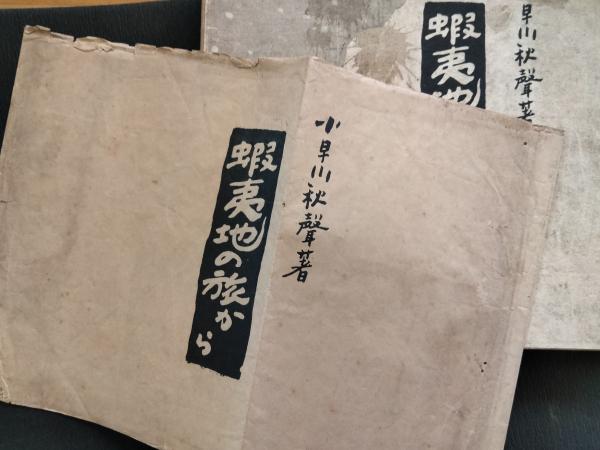 小早川秋聲著
蝦夷地の旅から
早川秋聲著
蝦夷地